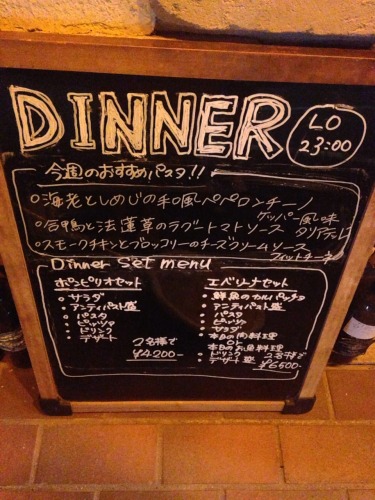 DINNER
LO
23:00
今週のおすすめパスタ!!
○海老としめじの和風ペペロンチーノ
○合鴨と法蓮草のラグートマトソース
タリアテッレ
○スモークチキンとブロッコリーのチーズクリームソース
フィットチーネ
Dinner set menu
ポンピリオセット
• サラダ
• アンティパスト盛
• パスタ
• ピッツァ
• ドリンク
• デザート
2名様で
¥4200-
エベリーナセット
• 鮮魚のカルパッチョ
• アンティパスト盛
• パスタ
• ピッツァ
• サラダ
• 本日の肉料理
or
本日のお魚料理
• ドリンク
• デザート盛
2名様で
¥6500-